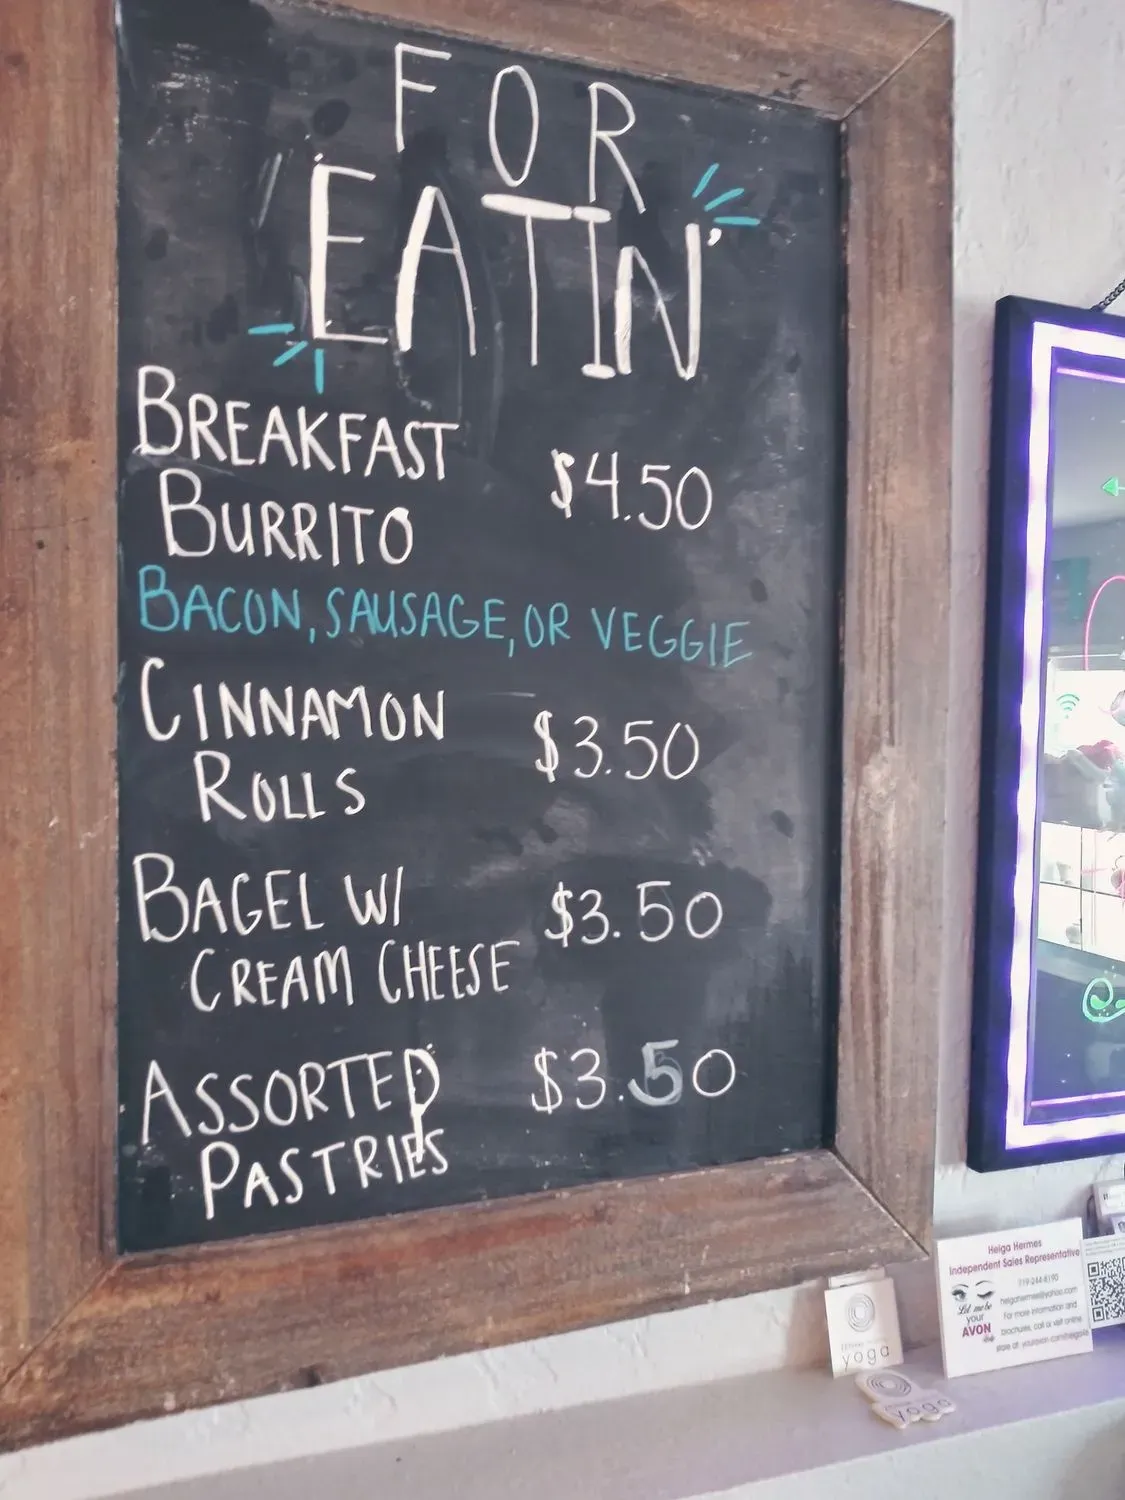 FOR
EATIN'
BREAKFAST
BURRITO
$4.50
BACON, SAUSAGE, OR VEGGIE
CINNAMON
ROLLS
$3.50
BAGEL W/
CREAM CHEESE
$3.50
ASSORTED
PASTRIES
$3.50
Helga Hermes
Independent Sales Representative
719-244-8190
helgahermes@yahoo.com
Let me be
your
AVON
lady
For more information and
brochures, call or visit online
yoga
yoga